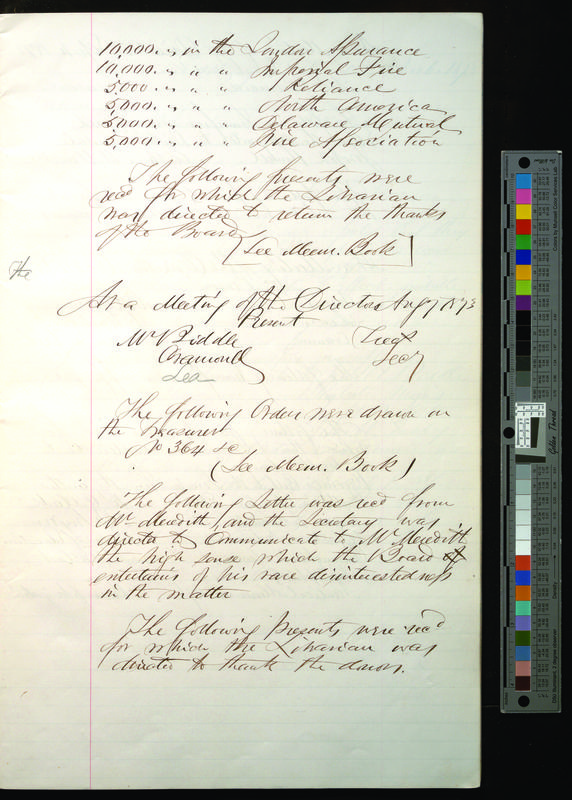 10,000. " in the London Assurance
10,000. " " " Imperial Fire
5,000 . " " " Reliance
5,000. " " " North America
5,000. " " " Delaware Mutual
5,000. " " " Fire Association
The following presents were
recd for which the Librarian
was directed to return the thanks
of the Board
[See Mem. Book]
The
At a Meeting of the Directors Aug 7 1873
Present
Mr Biddle
Cramond
Lea
Secy
The following Orders were drawn on
the Treasurer
No 364 &c
(See Mem. Book)
The following Letter was recd from
Mr Meredith and the Secretary was
directed to Communicate to Mr Meredith
the high sense which the Board
entertains of his rare disinterestedness
in the matter
The following presents were recd
for which the Librarian was
directed to thank the donors.
Golden Thread